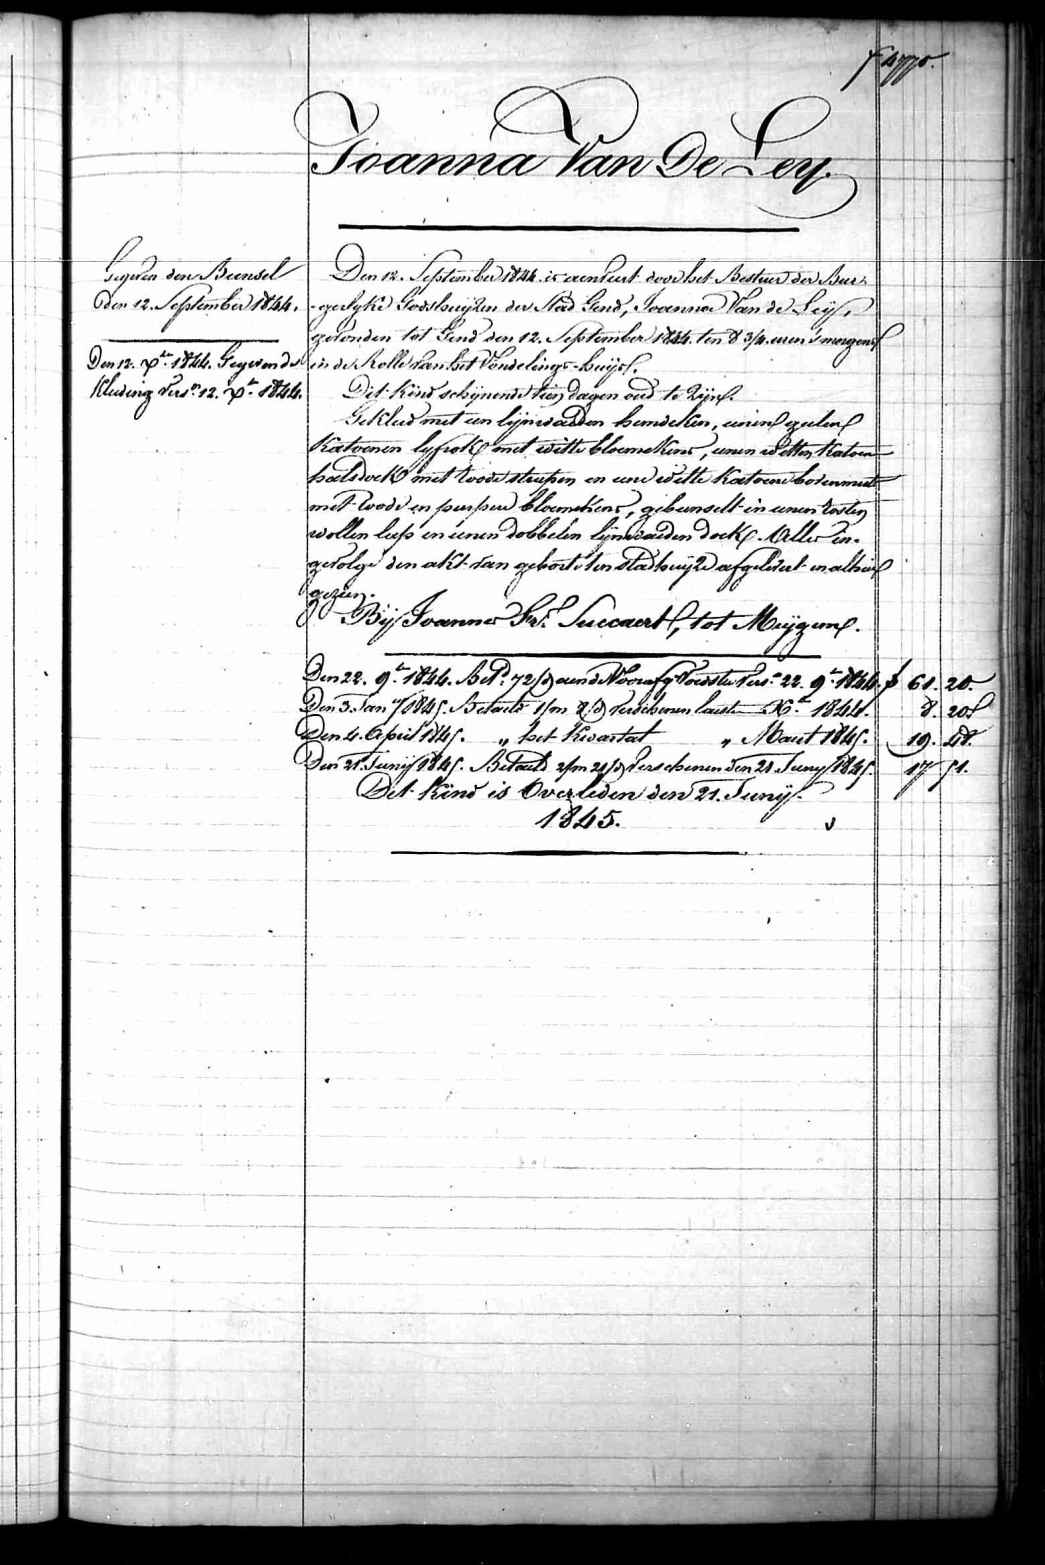 f 4770.
Joanna Van De Ley.
Gegeven den Bunsel
den 12. September 1844.
Den 12. Xr. 1844. Gegeven de
Kleding vers.n 12. Xr. 1844.
Den 12. September 1844. is aenveert door het Bestuer der Bur-
-gerlyke Godshuyzen der Stad Gend, Joanna Van de Ley,
gevonden tot Gend den 12. September 1844. ten 8 3/4. uren 's morgens
in de Rolle van het Vondelings-huys.
Dit kind schynende tien dagen oud te zyn.
Gekleed met een lynwaeden hemdeken, eenen geelen
katoenen lyfrok met witte bloemekens, eenen witten katoen
halsdoek met roode streepen en eene witte katoene bovenmuts
met roode en purpere bloemekens, gebunselt in eenen rosten
wollen leep en eenen dobbelen lynwaeden doek. Alles in-
gevolge den akt van geboorte ten stadhuyze afgelevert en alhier
gezien.
By Joannes Fr.s Succaert, tot Muyzen.
Den 22. 9r. 1844. Bet.d 72/d aen de Voorafg. Voedster vers.n 22. 9r. 1844. f 61. 20.
Den 3. Jan.y 1845. Betaeld 1/m 8/d verschenen laesten Xr. 1844. 8. 20
Den 4. April 1845. " het kwartael " Maert 1845. 19. 48.
Den 21. Juny 1845. Betaeld 2/m 21/d verschenen den 21. Juny 1845. 17 51.
Dit kind is Overleden den 21. Juny.
1845.